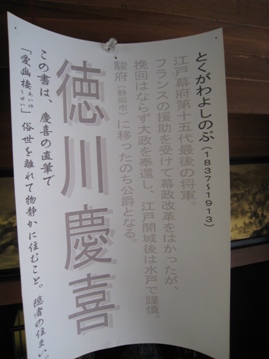 とくがわよしのぶ(1837~1913)
江戸幕府第十五代最後の将軍。
フランスの援助を受けて幕政改革をはかったが、
挽回はならず大政を奉還し、江戸開城後は水戸で謹慎。
駿府(静岡市)に移ったのち公爵となる。
徳川慶喜
この書は、慶喜の直筆で
「愛幽棲」俗世を離れて物静かに住むこと。隠者の住まい。